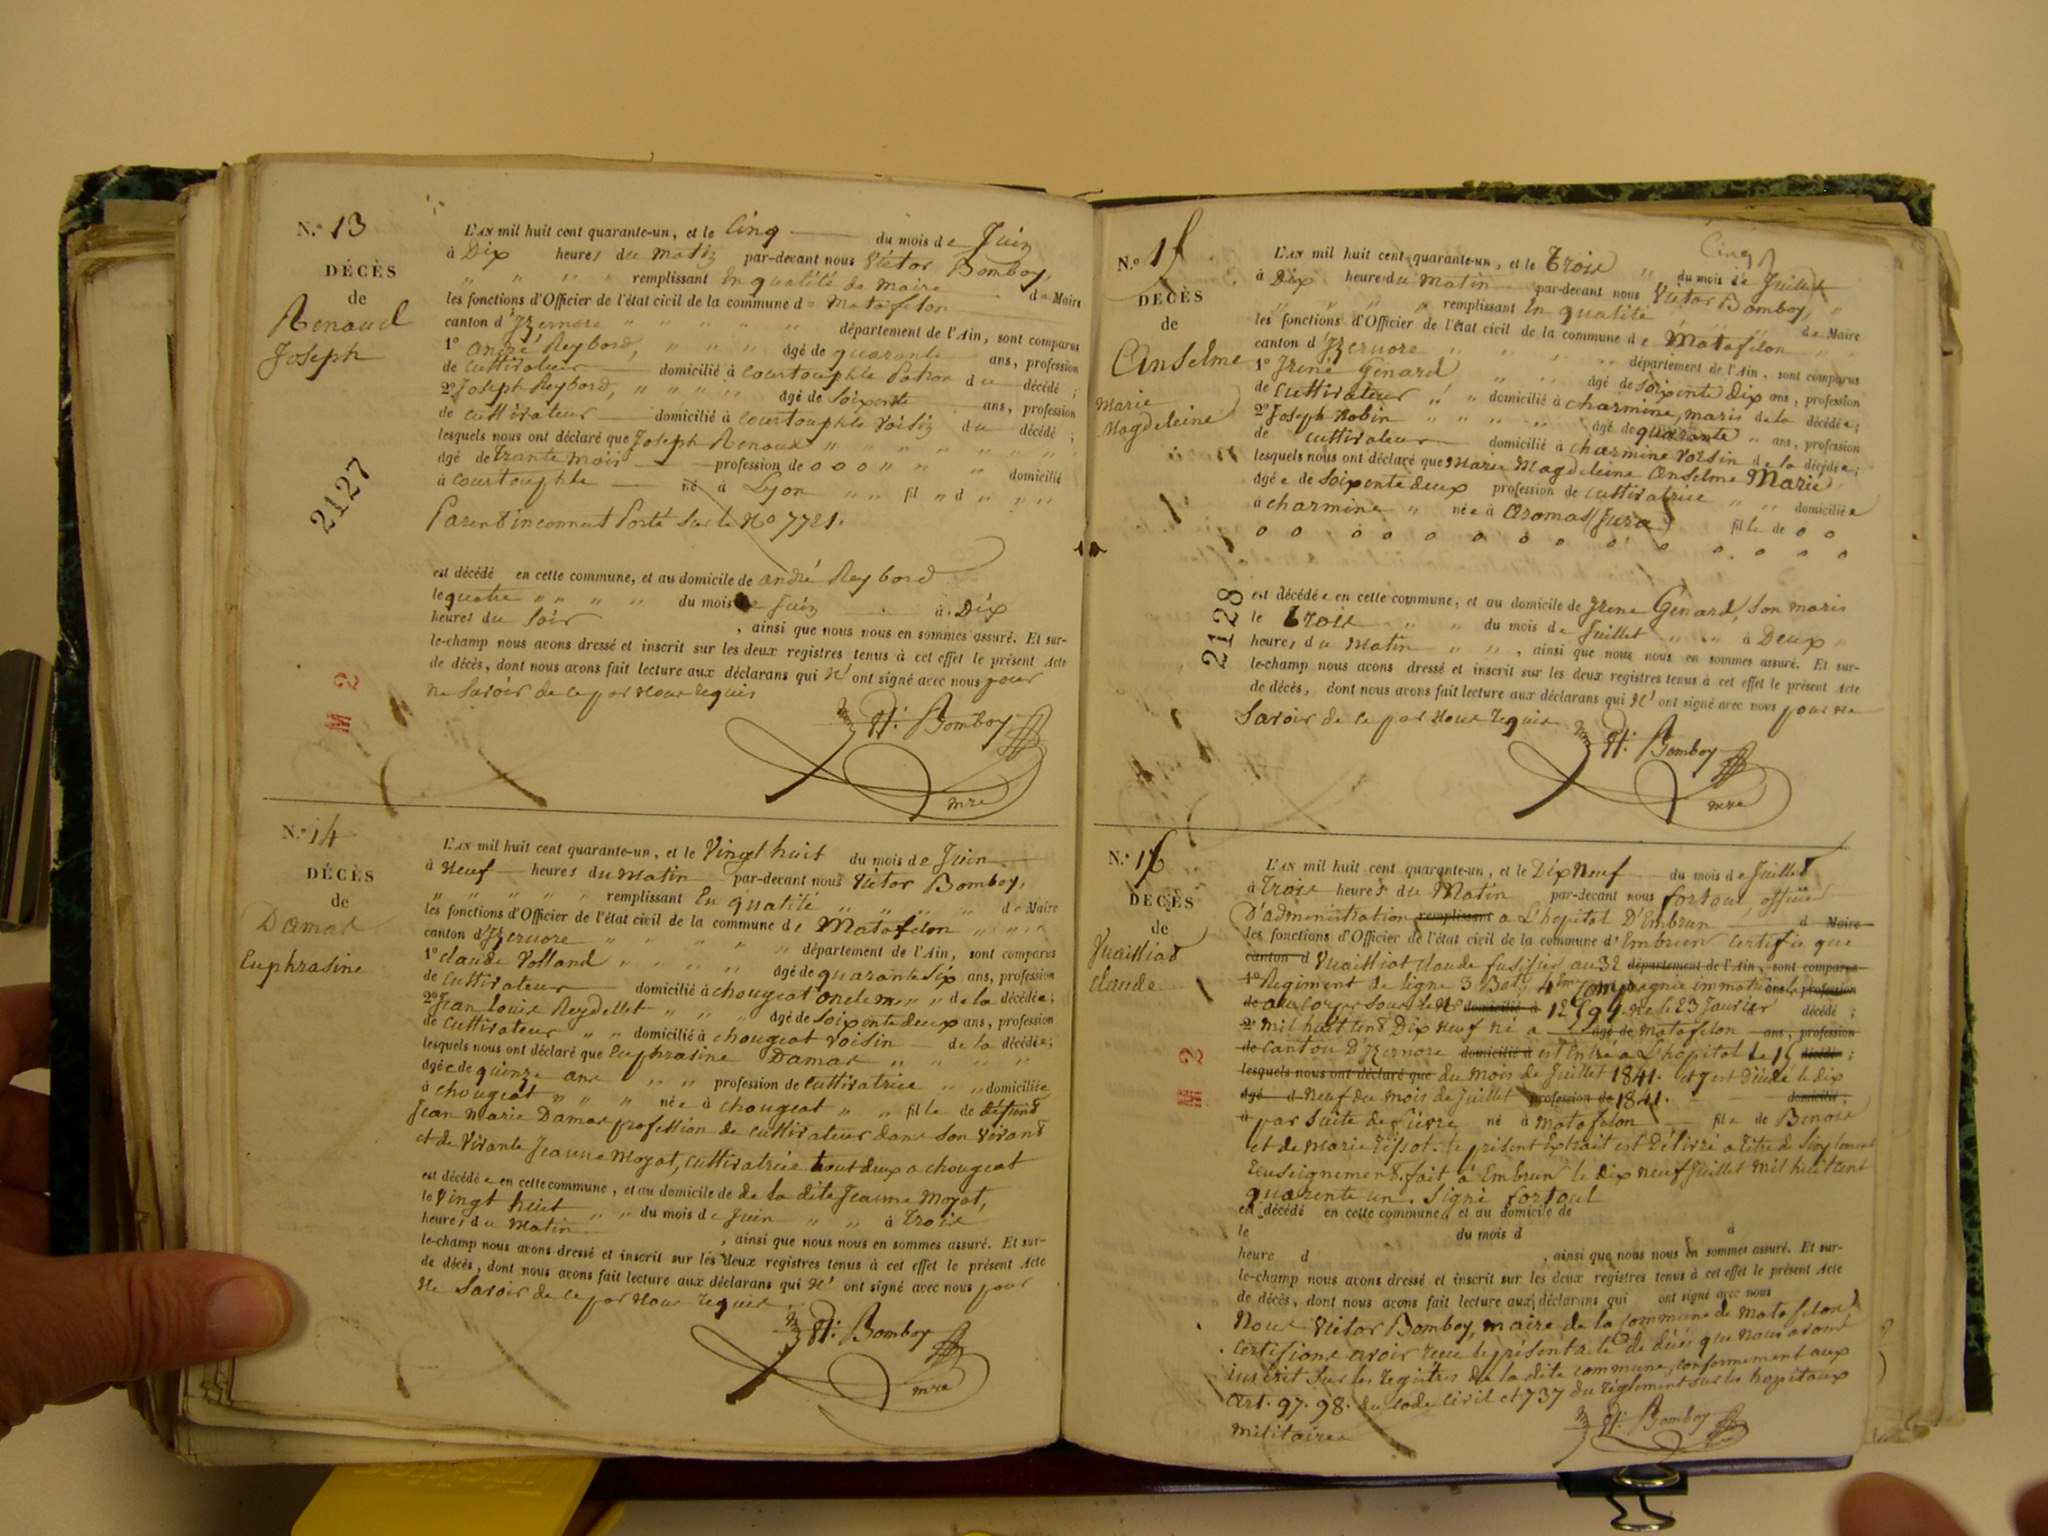 N.o 13
DÉCÈS
de
Renaud
Joseph
2127
M 2
L'AN mil huit cent quarante-un, et le Cinq du mois de Juin
à Dix heures du matin par-devant nous Victor Bomboy,
remplissant En qualité de maire de Maire
les fonctions d'Officier de l'état civil de la commune de Matafelon
canton d'Izernore département de l'Ain, sont comparus
1o André Reybord, âgé de quarante ans, profession
de cultivateur domicilié à courtouphle Patron du décédé ;
2o Joseph Reybord, âgé de soixente ans, profession
de cultivateur domicilié à courtouphle Voisin du décédé ;
lesquels nous ont déclaré que Joseph Renaux
âgé de trante mois profession de o o o domicilié
à courtouphle né à Lyon fil d
Parent inconnut Porté sur le No 7721.
est décédé en cette commune, et au domicile de andré Reybord
le quatre du mois de Juin à Dix
heures du soir , ainsi que nous nous en sommes assuré. Et sur-
le-champ nous avons dressé et inscrit sur les deux registres tenus à cet effet le présent Acte
de décès, dont nous avons fait lecture aux déclarans qui n' ont signé avec nous pour
ne savoir de ce par nous requis
Vt. Bomboy
mre
N.o 14
DÉCÈS
de
Damas
Euphrasine
L'AN mil huit cent quarante-un, et le Vingt huit du mois de Juin
à Neuf heures du Matin par-devant nous Victor Bomboy,
remplissant En qualité de Maire
les fonctions d'Officier de l'état civil de la commune de Matafelon
canton d'Izernore département de l'Ain, sont comparus
1o claude Volland âgé de quarante six ans, profession
de cultivateur domicilié à chougeat oncle m de la décédée ;
2o Jean Louis Reydellet âgé de soixente deux ans, profession
de cultivateur domicilié à chougeat voisin de la décédée ;
lesquels nous ont déclaré que Euphrasine Damas
âgée de quinze ans profession de cultivatrice domiciliée
à chougeat née à chougeat fille de défund
Jean marie Damas profession de cultivateur dans son vivand
et de vivante Jeanne Moyat, cultivatrice tout deux a chougeat
est décédée en cette commune, et au domicile de de la dite Jeanne Moyat,
le Vingt huit du mois de Juin à trois
heures du Matin , ainsi que nous nous en sommes assuré. Et sur-
le-champ nous avons dressé et inscrit sur les deux registres tenus à cet effet le présent Acte
de décès, dont nous avons fait lecture aux déclarans qui n' ont signé avec nous pour
ne savoir de ce par nous requis.
Vt. Bomboy
mre
N.o 15
DÉCÈS
de
Anselme
Marie
Magdeleine
2128
Cinq
L'AN mil huit cent quarante-un, et le trois du mois de Juillet
à Dix heures du matin par-devant nous Victor Bomboy,
remplissant En qualité de Maire
les fonctions d'Officier de l'état civil de la commune de Matafelon
canton d'Izernore département de l'Ain, sont comparus
1o Irené Génard âgé de soixente Dix ans, profession
de cultivateur domicilié à charmine, maris de la décédée ;
2o Joseph Robin âgé de quarante ans, profession
de cultivateur domicilié à charmine voisin de la décédée ;
lesquels nous ont déclaré que Marie Magdeleine Anselme Marié
âgée de soixente deux profession de cultivatrice domiciliée
à charmine née à Aromas (Jura) fille de o o
o o o o o o o o o o o o o
est décédée en cette commune, et au domicile de Irené Génard, son maris
le trois du mois de Juillet à Deux
heures du Matin , ainsi que nous nous en sommes assuré. Et sur-
le-champ nous avons dressé et inscrit sur les deux registres tenus à cet effet le présent Acte
de décès, dont nous avons fait lecture aux déclarans qui n' ont signé avec nous pour ne
savoir de ce par nous requis
Vt. Bomboy
mre
N.o 16
DÉCÈS
de
Vuailliat
claude
M 2
L'AN mil huit cent quarante-un, et le Dix Neuf du mois de Juillet
à trois heures du Matin par-devant nous fortoul, officier
D'administration remplissant a L'hopital D'Embrun d Maire
les fonctions d'Officier de l'état civil de la commune d'Embrun certifie que
canton d Vuailliat claude fusilier au 32 département de l'Ain, sont comparus
1o Regiment de ligne 3 Bat. 4me Compagnie immatriculé ans, profession
de au corps sous le No domicilié à né le 23 Janvier décédé ;
2o mil huit cent Dix neuf né a âgé de matafelon ans, profession
de Canton D'Izernore domicilié à est entré a L'hopital le 15 décédé ;
lesquels nous ont déclaré que du mois de Juillet 1841. et y est Décédé le dix
âgé d neuf du mois de Juillet profession de 1841. domicilié
à par suite de fievre né à matafelon fils de Benoit
et de Marie Tissot. le présent Extrait est Délivré a titre de simple
renseignement. fait à Embrun le dix neuf Juillet mil huit cent
quarente un. Signé fortoul
est décédé en cette commune, et au domicile de
le du mois d à
heure d , ainsi que nous nous en sommes assuré. Et sur-
le-champ nous avons dressé et inscrit sur les deux registres tenus à cet effet le présent Acte
de décès, dont nous avons fait lecture aux déclarans qui ont signé avec nous
Nous Victor Bomboy, maire de la commune de Matafelon,
certifions avoir reçu le présent acte de décès que nous avons
inscrit sur les registres de la dite commune, conformement aux
Art. 97. 98. du code civil et 737 du réglement sur les hopitaux
militaires
Vt. Bomboy